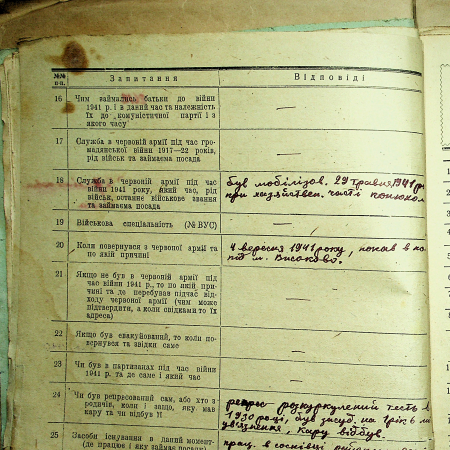 №№ п.п.
Запитання
Відповіді
16 Чим займались батьки до війни
1941 р. і в даний час та належність
їх до „комуністичної партії і з
якого часу"
—
17 Служба в червоній армії під час гро-
мадянської війни 1917—22 років,
рід військ та займаєма посада
—
18 Служба в червоній армії під час
війни 1941 року, який час, рід
військ, останнє військове звання
та займаєма посада
був мобілізов. 29 травня 1941
при хазяйствен. часті конюхом
19 Військова спеціальність (№ ВУС)
—
20 Коли повернувся з червоної армії та
по якій причині
4 вересня 1941 року, попав в
під м.
21 Якщо не був в червоній армії під
час війни 1941 р., то по якій при-
чині та де перебував підчас від-
ходу червоної армії (чим може
підтвердити, а коли свідками то їх
адреса)
—
22 Якщо був евакуйований, то коли по-
вернувся та звідки саме
—
23 Чи був в партизанах під час війни
1941 р. та де саме і який час
—
24 Чи був репресований сам, або хто з
родичів, коли і защо, яку мав
кару та чи відбув її
розкуркулений тесть в
1930 році, був засуд. на 3 рік 6 м
увязнення кару відбув.
25 Засоби існування в даний момент
(де працює і яку займає посаду)
прац. в